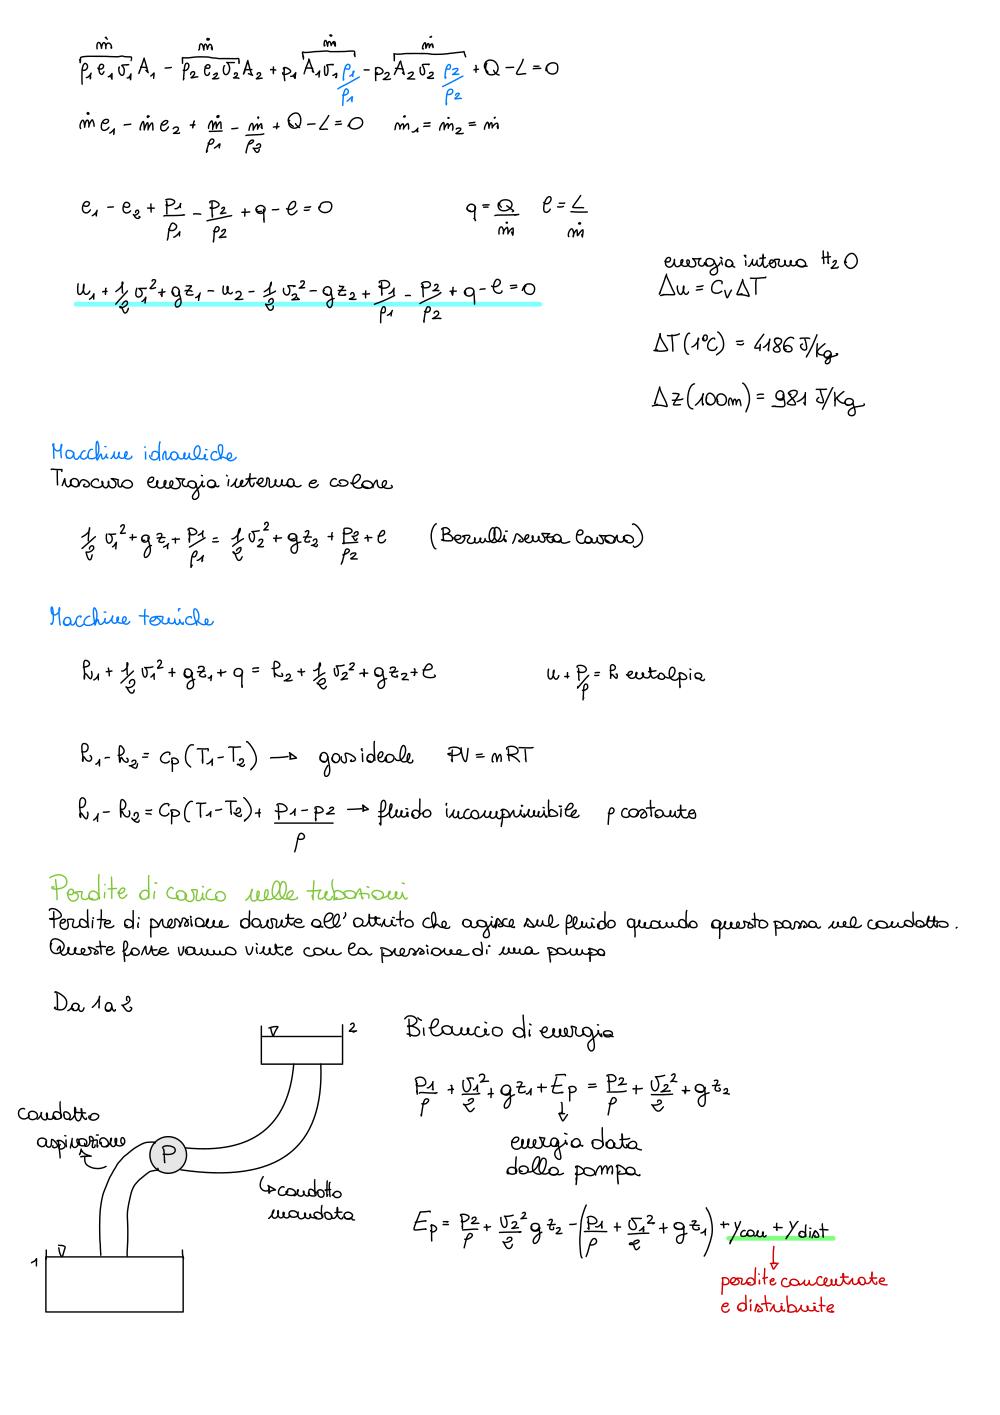 ṁ ṁ ṁ ṁ
ρ₁e₁v₁A₁ - ρ₂e₂v₂A₂ + p₁A₁v₁ρ₁/ρ₁ - p₂A₂v₂ρ₂/ρ₂ + Q - L = 0
ṁe₁ - ṁe₂ + ṁ/ρ₁ - ṁ/ρ₂ + Q - L = 0 ṁ₁ = ṁ₂ = ṁ
e₁ - e₂ + p₁/ρ₁ - p₂/ρ₂ + q - l = 0 q = Q/ṁ l = L/ṁ
energia interna H₂O
u₁ + 1/2 v₁² + gz₁ - u₂ - 1/2 v₂² - gz₂ + p₁/ρ₁ - p₂/ρ₂ + q - l = 0
Δu = CᵥΔT
ΔT(1°C) = 4186 J/Kg
Δz(100m) = 981 J/Kg
Macchine idrauliche
Trascuro energia interna e calore
1/2 v₁² + gz₁ + p₁/ρ₁ = 1/2 v₂² + gz₂ + p₂/ρ₂ + l (Bernulli senza lavoro)
Macchine termiche
h₁ + 1/2 v₁² + gz₁ + q = h₂ + 1/2 v₂² + gz₂ + l u + p/ρ = h entalpia
h₁ - h₂ = cp(T₁ - T₂) → gas ideale PV = nRT
h₁ - h₂ = cp(T₁ - T₂) + p₁ - p₂/ρ → fluido incomprimibile ρ costante
Perdite di carico nelle tubazioni
Perdite di pressione dovute all'attrito che agisce sul fluido quando questo passa nel condotto.
Queste forze vanno vinte con la pressione di una pompa
Da 1 a 2
2
Bilancio di energia
p₁/ρ + v₁²/2 + gz₁ + Ep = p₂/ρ + v₂²/2 + gz₂
condotto
aspirazione
P
energia data
dalla pompa
condotto
mandata
Ep = p₂/ρ + v₂²/2 gz₂ - (p₁/ρ + v₁²/2 + gz₁) + ycon + ydist
1
perdite concentrate
e distribuite